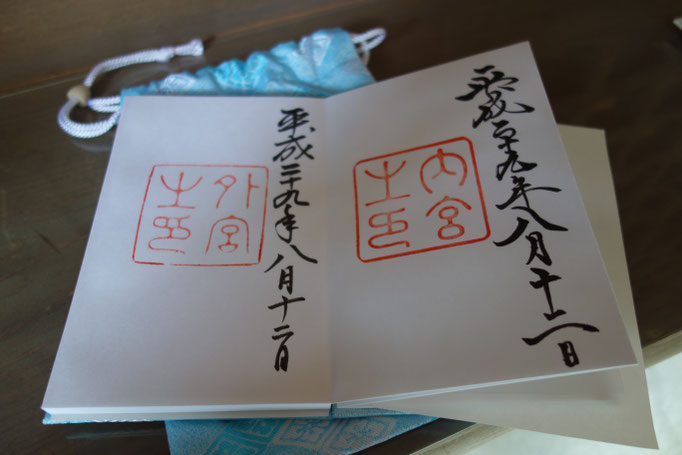 平成二十九年八月十二日
内宮
之印
平成二十九年八月十二日
外宮
之印